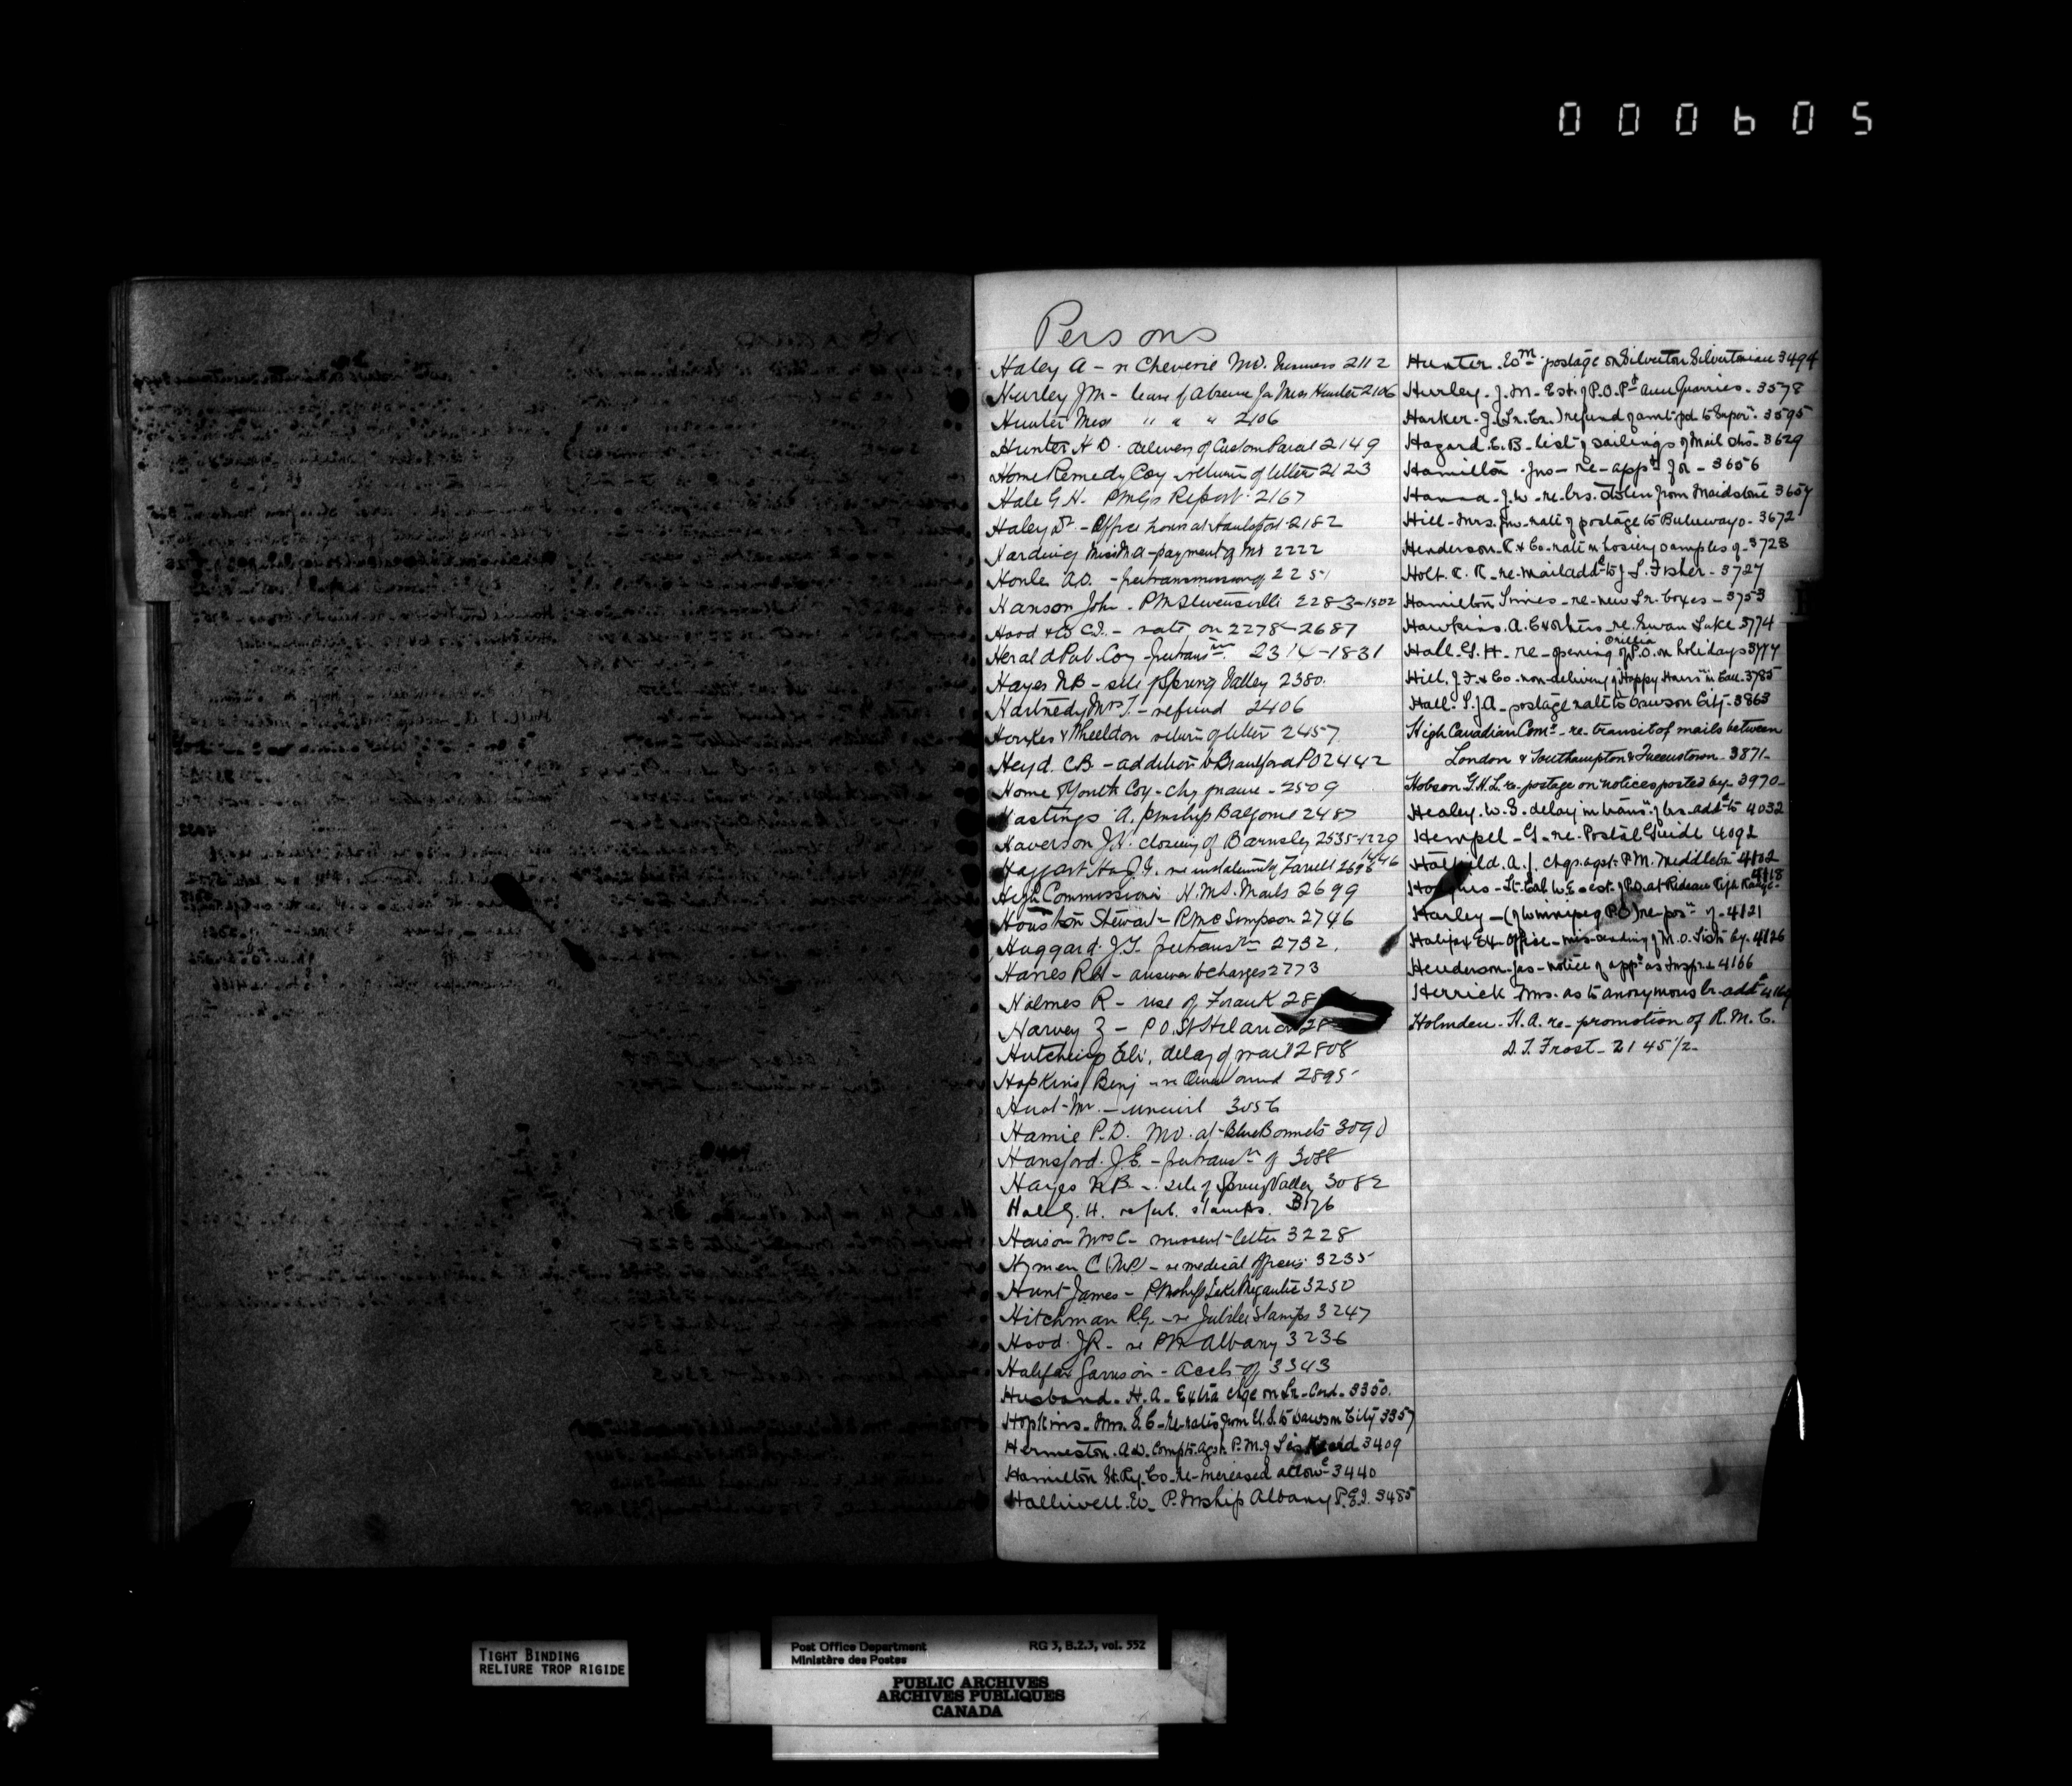 000605
Persons
Haley A - re Cheverie MO. Business 2112
Hurley JM - leave of Absence for Miss Hunter 2106
Hunter Miss " " " 2106
Hunter H D. delivery of Custom Parcel 2149
Home Remedy Coy return of letter 2123
Hale G. H. PMGs Report 2167
Haley Dr. - Office hours at Hantsport 2182
Harding Miss M A - payment of MO 2222
A.O. - free transmission of 2251
Hanson John. PM Stevensville 2283-1502
Hood & Co C.I. - rate on 2278-2687
Herald Pub. Coy - free transn. 2314-1831
Hayes NB - site of Spring Valley 2380.
Hartnedy Mrs T. - refund 2406
Hawkes & Wheeldon return of letter 2457
Heyd. C.B. - addition to Brantford PO 2442
Home & Youth Coy - chg of name - 2509
Hastings A. pmship Balfour 2487
Haverson J.H. closing of Barnsley 2535-1229
Haggart Hon J.G. re Farrell 2696 1446
High Commissioner H.M.S. Mails 2699
Houston Stewart - RMC Simpson 2746
Huggard. J.T. free transn 2732.
Harris RH - answer to charges 2773
Holmes R - use of Frank 28
Harvey Z - P.O. St Hilarion 28
Hutchins Eli, delay of mail 2808
Hopkins Benj - re Owen Sound 2895
Hurst Mr. - uncivil 3056
Hamie P.D. MO. at Blue Bonnets 3090
Hansford. J.E. - free transn of 3088
Hayes N.B. - site of Spring Valley 3082
Hale G. H. re Jub. stamps. 3176
Haison Mrs C - missent letter 3228
Hyman C (MP) - re medical officers 3235
Hunt James - PMship Lake Megantic 3250
Hitchman R.G. - re Jubilee Stamps 3247
Hood. JR - re PM Albany 3236
Halifax Garrison - Accts of 3343
Husband - H. A. - Extra chge on Lr - Card - 3350.
Hopkins - Mrs. S. C - re - rates from U.S. to Dawson City 3357
Hermeston. A.W. Compt. agst. P.M. of Liskeard 3409
Hamilton St. Ry. Co - re - increased allowce - 3440
Halliwell. W - P. Mship Albany P.E.I. 3485
Hunter. Wm - postage on Silverton Silvertonian 3494
Hurley - J. M - Est. of P.O. Pt Ann Quarries - 3578
Harker - J. (Lr. Cr.) refund of amt. pd. to Super. - 3595
Hazard. E.B - list of sailings of Mail Shs - 3629
Hamilton - Jno - re - appt for - 3656
Hanna - J. W - re - lrs. stolen from Maidstone 3657
Hill - Mrs. Jno - rate of postage to Buluwayo - 3672
Henderson - R & Co - rate on hosiery samples of - 3723
Holt. R. R - re - mail addd to J. L. Fisher - 3727
Hamilton Times - re - new Lr. boxes - 3753
Hawkins. A. C & others - re. Swan Lake 3774
Hall. G. H - re - opening of Orillia P.O. on holidays 3777
Hill. J. F. & Co - non-delivery of Happy Hours in Can. 3785
Hall. S. J. A - postage rate to Dawson City - 3863
High Canadian Comr - re - transit of mails between
London & Southampton & Queenstown - 3871 -
Hobson G.H.L. re - postage on notices posted by - 3970 -
Healey. W. S. delay in trans. of lrs. addd to 4032
Hempel - G - re - Postal Guide 4092
Hatfield. A. J. chgs. agst. P.M. Middleton 4102
Hodgins - Lt. Col. W. E - est. of P.O. at Rideau Rifle Range - 4118
Harley - (of Winnipeg P.O.) re - posn of - 4121
Halifax Ex. Office - mis-sending of M.O. Lists by - 4126
Henderson - Jas - notice of appt as Inspr 4166
Herrick Mrs. as to anonymous lr. addd 4169
Holmden - H. A. re - promotion of R. M. C.
D. T. Frost - 2145 1/2 -
TIGHT BINDING
RELIURE TROP RIGIDE
Post Office Department RG 3, B.2.3, vol. 552
Ministère des Postes
PUBLIC ARCHIVES
ARCHIVES PUBLIQUES
CANADA